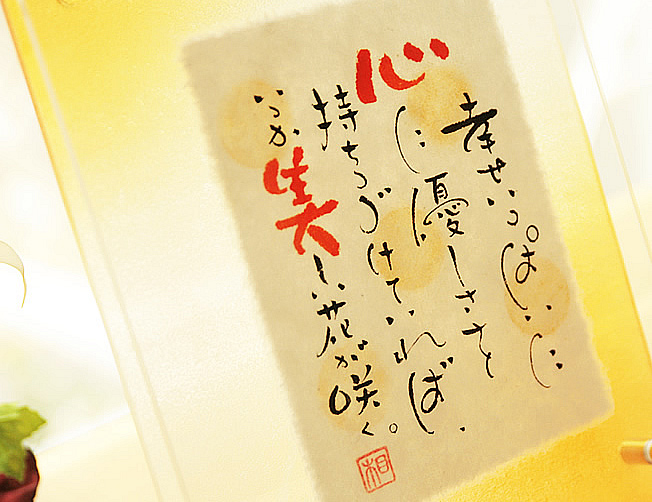 幸せいっぱいに
心に優しさと
持ちつづけていれば、
いつか美しい花が咲く。
相